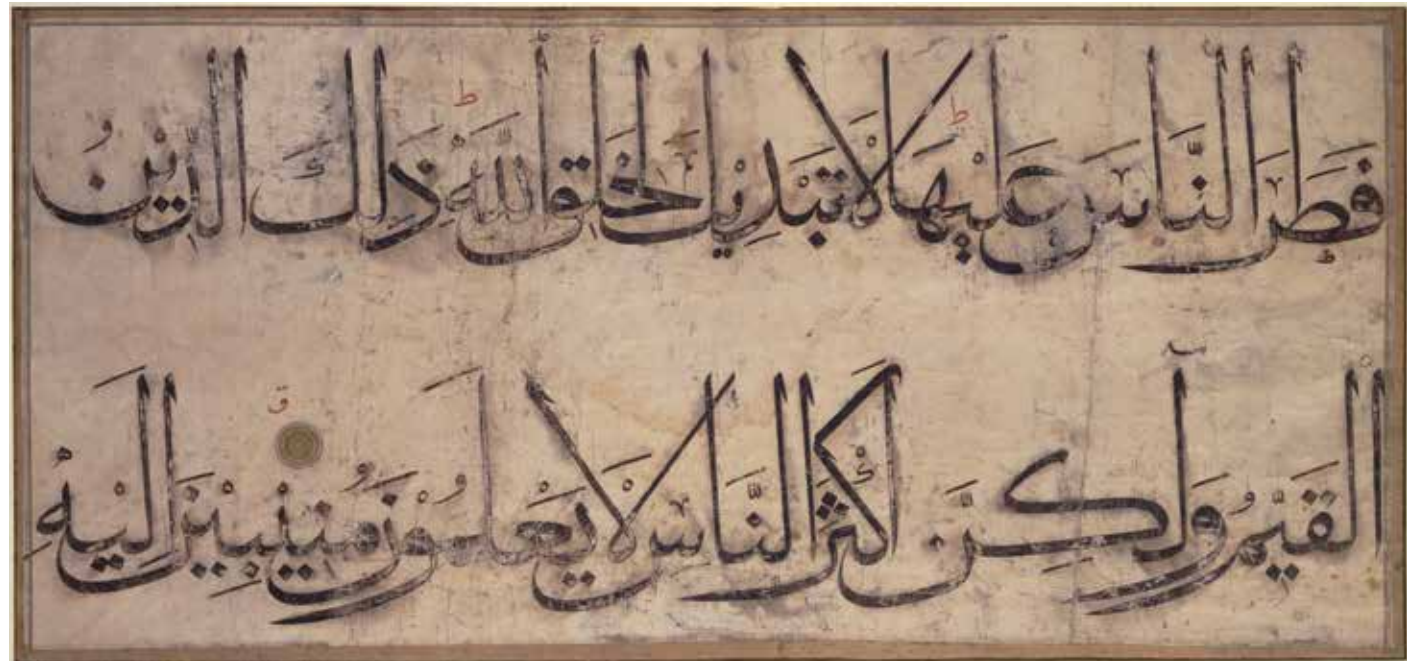 فَطَرَ النَّاسَ عَلَيْهَا ۖ لَا تَبْدِيلَ لِخَلْقِ اللَّهِ ۚ ذَٰلِكَ الدِّينُ
الْقَيِّمُ وَلَٰكِنَّ أَكْثَرَ النَّاسِ لَا يَعْلَمُونَ مُنِيبِينَ إِلَيْهِ